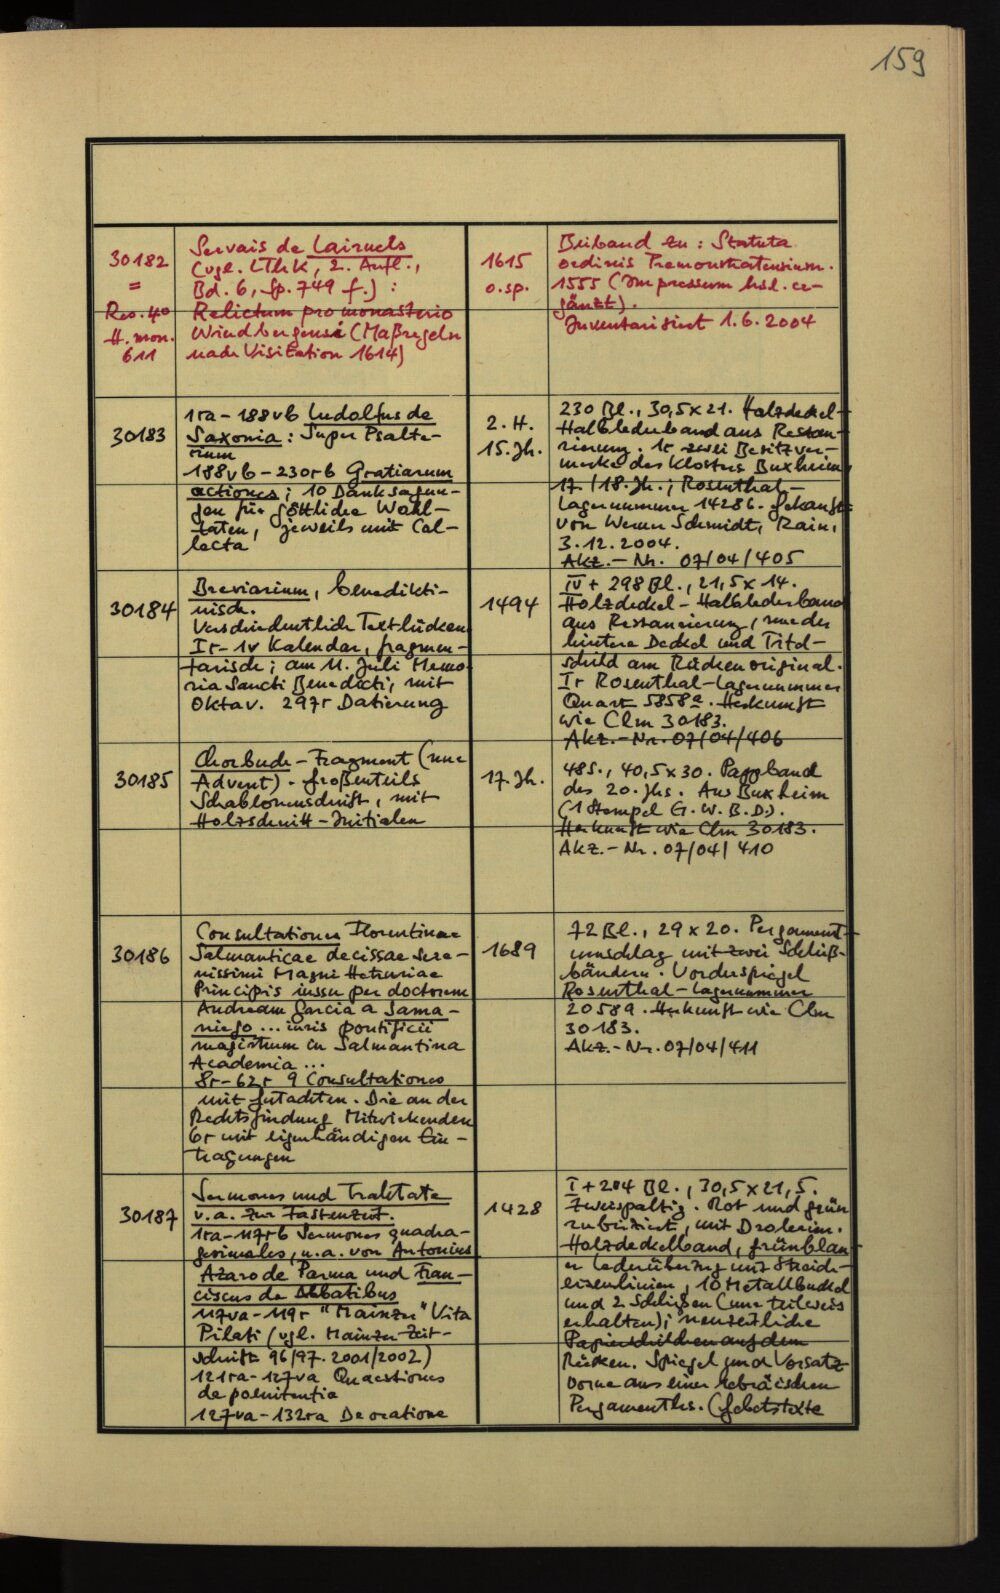 159
30182
=
Res. 4°
H. mon.
611
Servais de Lairuels
(vgl. LThK, 2. Aufl.,
Bd. 6, Sp. 749 f.) :
Relictum pro monasterio
Windbergensi (Maßregeln
nach Visitation 1614)
1615
o. sp.
Beiband zu : Statuta
ordinis Premonstratensium.
1555 (Impressum hsl. er-
gänzt).
Inventarisiert 1.6.2004
30183
1ra - 188vb Ludolfus de
Saxonia : Super Psalte-
rium
188vb - 230rb Gratiarum
actiones ; 10 Danksagun-
gen für göttliche Wohl-
taten, jeweils mit Col-
lecta
2. H.
15. Jh.
230 Bl., 30,5 x 21. Holzdeckel-
Halblederband aus Restau-
rierung. 1r zwei Besitzver-
merke des Klosters Buxheim,
17. / 18. Jh. ; Rosenthal-
Lagernummer 14286. Gekauft
von Werner Schmidt, Rain,
3.12.2004.
Akz.-Nr. 07/04/405
30184
Breviarium, benedikti-
nisch.
Verschiedentlich Textlücken
Ir - 1v Kalendar, fragmen-
tarisch ; am 11. Juli Memo-
ria Sancti Benedicti, mit
Oktav. 297r Datierung
1494
IV + 298 Bl., 21,5 x 14.
Holzdeckel - Halblederband
aus Restaurierung, nur der
hintere Deckel und Titel-
schild am Rücken original.
Ir Rosenthal-Lagernummer
Quart 5858a. Herkunft
wie Clm 30183.
Akz.-Nr. 07/04/406
30185
Chorbuch - Fragment (nur
Advent). Großenteils
Schablonenschrift, mit
Holzschnitt-Initialen
17. Jh.
48 S., 40,5 x 30. Pappband
des 20. Jhs. Aus Buxheim
(1 Stempel G. W. B. D.).
Herkunft wie Clm 30183.
Akz.-Nr. 07/04/410
30186
Consultationes Florentinae
Salmanticae decissae sere-
nissimi Magni Hetruriae
Principis iussu per doctorem
Andream Garcia a Sama-
niego ... iuris pontificii
magistrum in Salmantina
Academia ...
8r - 62r 9 Consultationes
mit Gutachten. Die an der
Rechtsfindung Mitwirkenden
6r mit eigenhändigen Ein-
tragungen
1689
72 Bl., 29 x 20. Pergament-
umschlag mit zwei Schließ-
bändern. Vorderspiegel
Rosenthal-Lagernummer
20589. Herkunft wie Clm
30183.
Akz.-Nr. 07/04/411
30187
Sermones und Traktate
v.a. zur Fastenzeit.
1ra - 117rb Sermones quadra-
gesimales, u.a. von Antonius
Azaro de Parma und Fran-
ciscus de Abbatibus
117va - 119r "Mainzer" Vita
Pilati (vgl. Mainzer Zeit-
schrift 96/97. 2001/2002)
121ra - 127va Quaestiones
de poenitentia
127va - 132ra De oratione
1428
I + 204 Bl., 30,5 x 21,5.
Zweispaltig. Rot und grün
rubriziert, mit Drolerien.
Holzdeckelband, grünblau-
er Lederüberzug mit Streich-
eisenlinien, 10 Metallbuckel
und 2 Schließen (nur teilweis
erhalten) ; neuzeitliche
Papierschildchen auf dem
Rücken. Spiegel und Vorsatz
vorne aus einer hebräischen
Pergamenths. (Gebetstexte